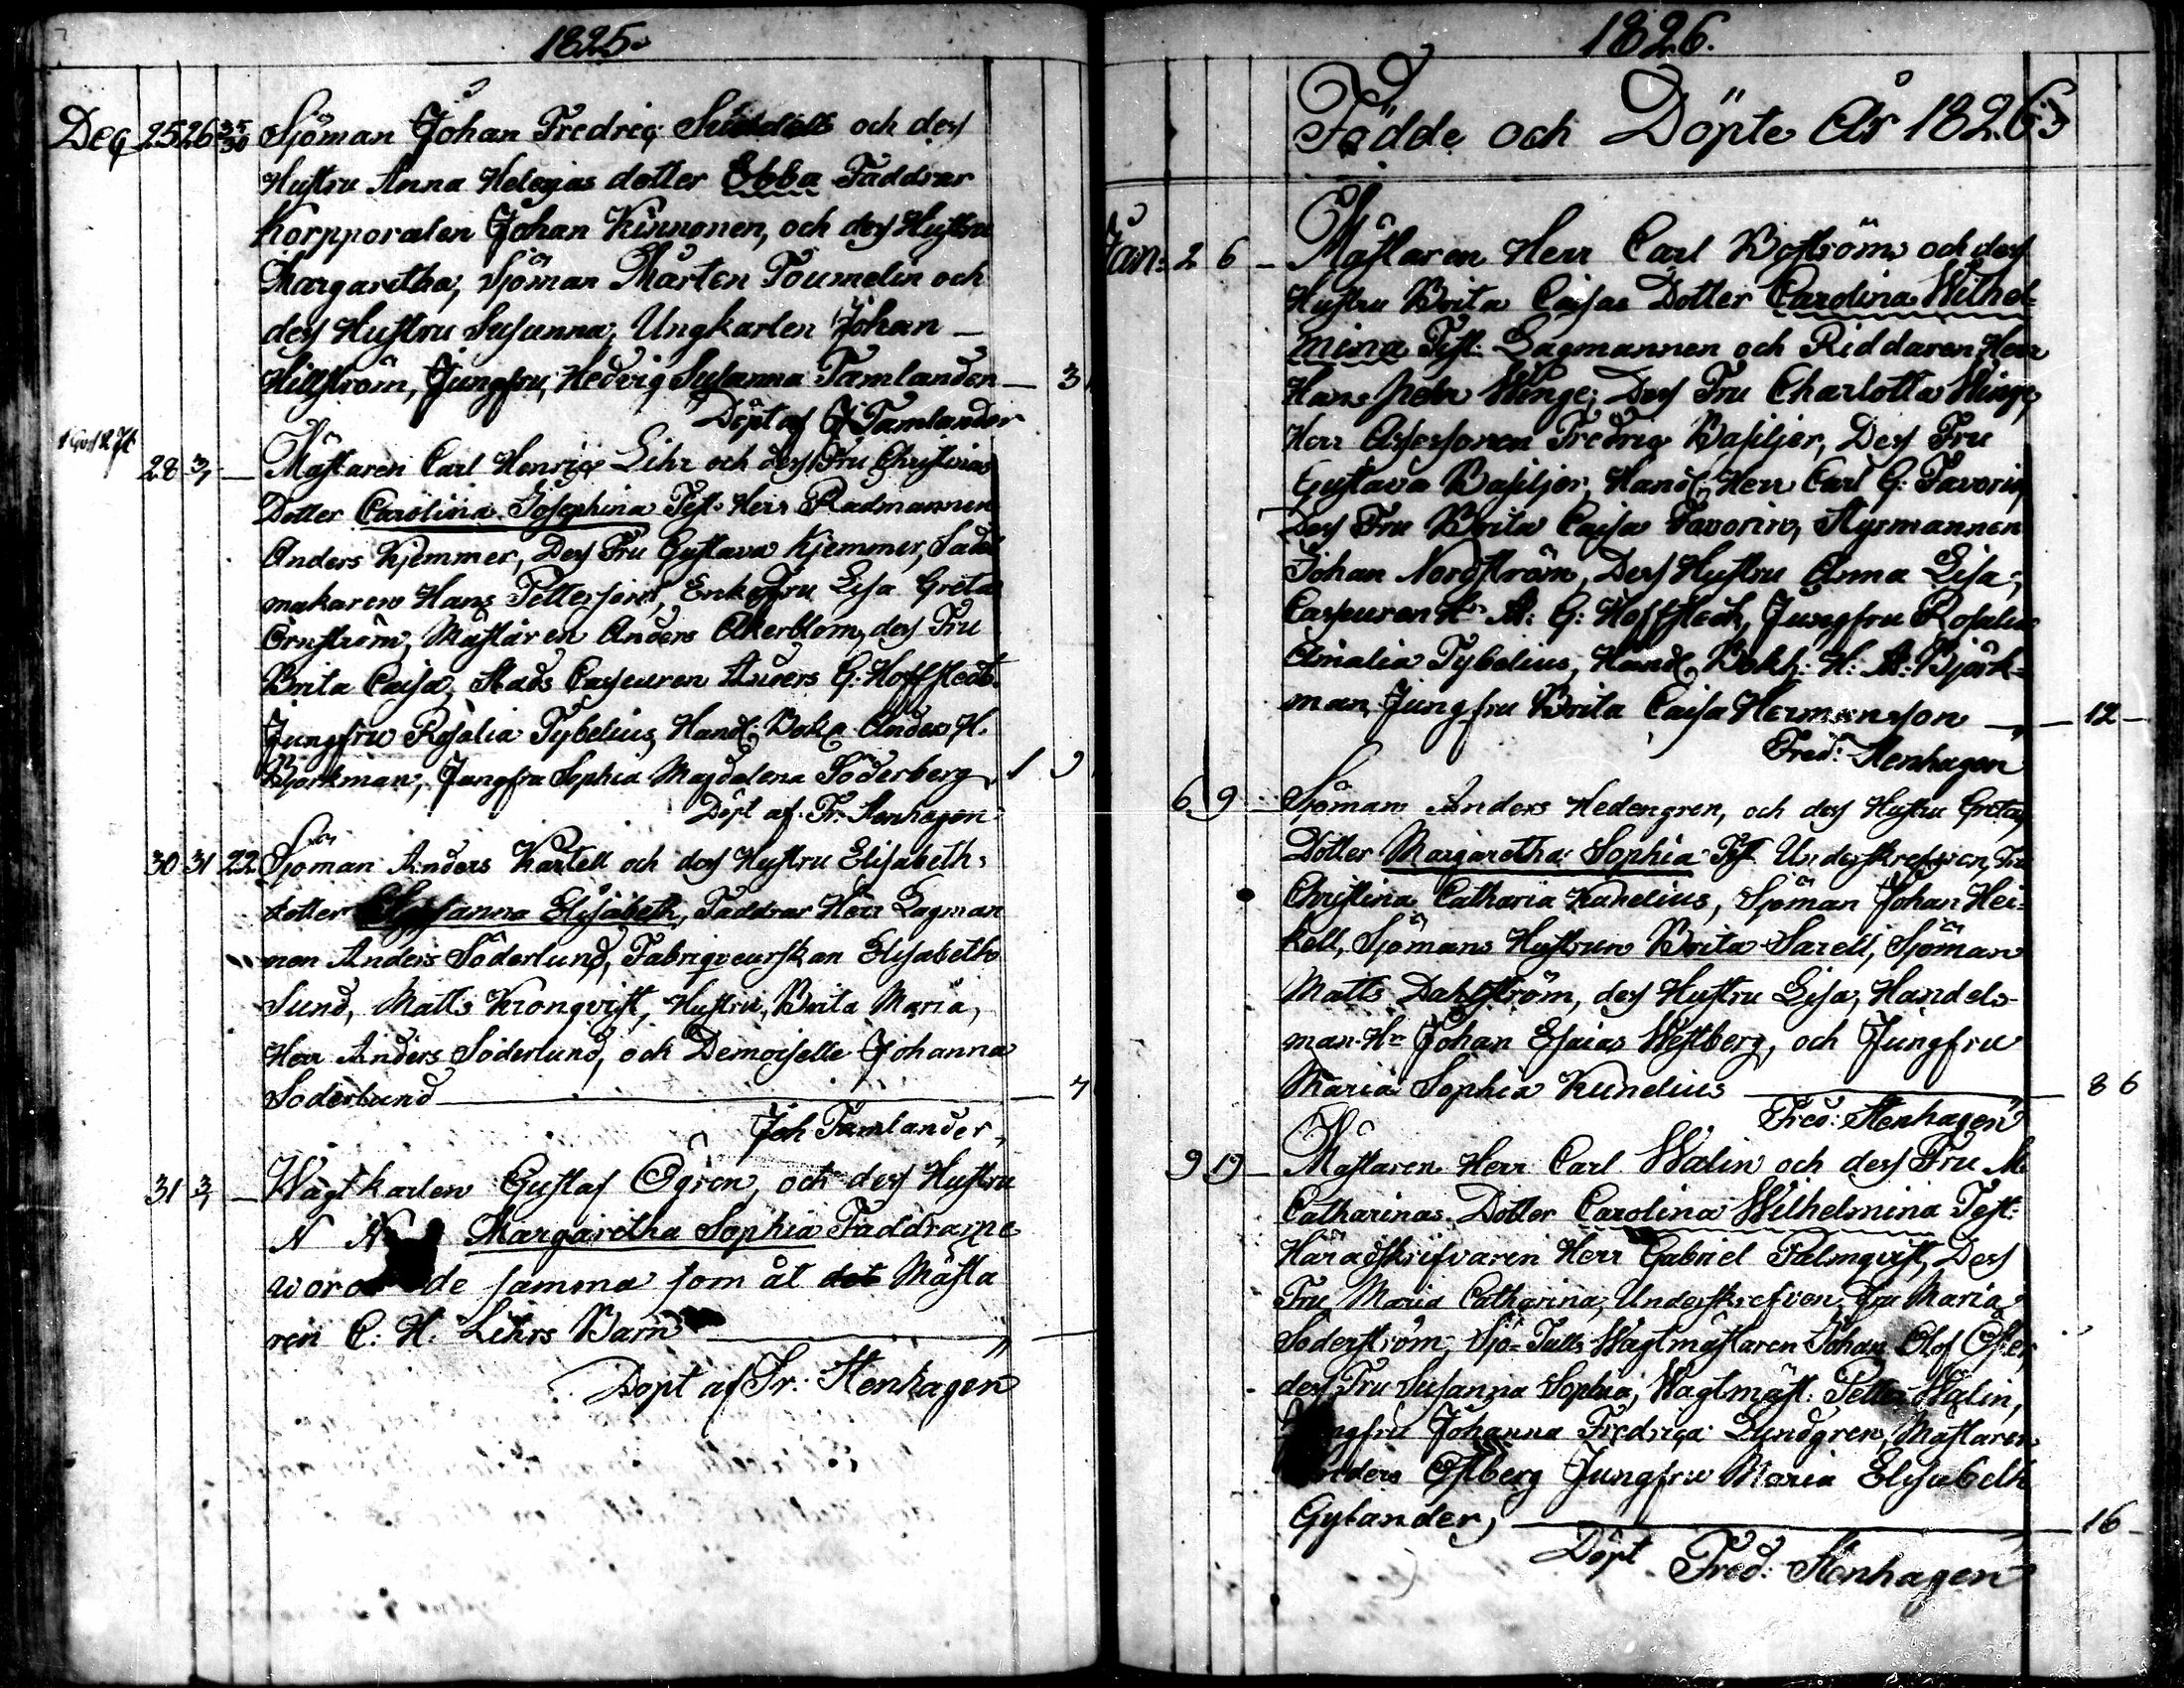 1825.
Dec 25 26 35/30 Sjöman Johan Fredric och dess
Hustru Anna Helenas dotter Ebba Faddrar
Korpporalen Johan Kinnonen, och dess Hustru
Margaretha, Sjöman Mårten Toumelin och
dess Hustru Susanna, Ungkarlen Johan
Hillström, Jungfru, Hedvig Susanna Tamlander — 3
Döpt af J Tamlander
28 3/1 — Mästaren Carl Henric Lihr och dess Fru Christinas
Dotter Carolina Josephina Test. Herr Radmannen
Anders Kjemmer, Dess Fru Gustava Kjemmer, Sadel
makaren Hans Pettersson, Enkefru Lisa Greta
Örnström, Mästaren Anders Åkerblom, dess Fru
Brita Caisa, Stads Casseuren Anders G. Hoffstedt.
Jungfru Rosalia Tybelius, Handl. Bokh Anders H.
Björkman, Jungfru Sophia Magdalena Söderberg, 1
Döpt af. Fr. Stenhagen
30 31 22 Sjöman Anders Kartell och dess Hustru Elisabeths
dotter Susanna Elisabeth, Faddrar Herr Lagman
nen Anders Söderlund, Fabriqveurskan Elisabeth
Sund, Matts Kronqvist, Hustru, Brita Maria,
Herr Anders Söderlund, och Demoiselle Johanna
Söderlund — 7
Joh Tamlander,
31 3/1 — Wagtkarlen Gustaf Ögren, och dess Hustru
N N Margaretha Sophia Faddrarne
woro de samma som åt det Mästa
ren C. H. Lihrs Barn —
Döpt af Fr: Stenhagen
1826.
Födde och Döpte År 1826
Jan: 2 6 — Mästaren Herr Carl Boström och dess
Hustru Brita Caisas Dotter Carolina Wilhel-
mina Test: Lagmannen och Riddaren Herr
Hans Peter Winge, Dess Fru Charlotta Winge,
Herr Assessoren Fredric Basiljer, Dess Fru
Gustava Basiljer, Handl. Herr Carl G: Favorin
Dess Fru Brita Caisa Favorin, Styrmannen
Johan Nordström, Dess Hustru Anna Lisa,
Casseuren Hr A: G: Hoffstedt, Jungfru Rosalia
Amalia Tybelius, Handl. Bokh: H: A: Björk-
man, Jungfru Brita Caisa Hermansson — 12 —
Fred: Stenhagen
6 9 — Sjöman Anders Hedengren, och dess Hustru Gretas
Dotter Margaretha Sophia Test. Underskrefven, Fru
Christina Catharia Kunelius, Sjöman Johan Hei-
kell, Sjömans Hustrun Brita Sarell, Sjöman
Matts Dahlström, dess Hustru Lisa, Handels-
man Hr Johan Esaias Westberg, och Jungfru
Maria Sophia Kunelius — 8 6
Fred: Stenhagen
9 19 — Mästaren Herr Carl Walin och dess Fru M.
Catharinas Dotter Carolina Wilhelmina Test:
Häradskrifvaren Herr Gabriel Palmqvist, Dess
Fru Maria Catharina, Underskrefven, Fru Maria
Söderström, Sjö-Tulls Wagtmästaren Johan Olof
dess Fru Susanna Sophia, Wagtmäst. Petter Walin,
Jungfru Johanna Fredrica Lundgren, Mästaren
Anders Östberg Jungfru Maria Elisabeth
Gylander, — 16 —
Döpt Fred: Stenhagen